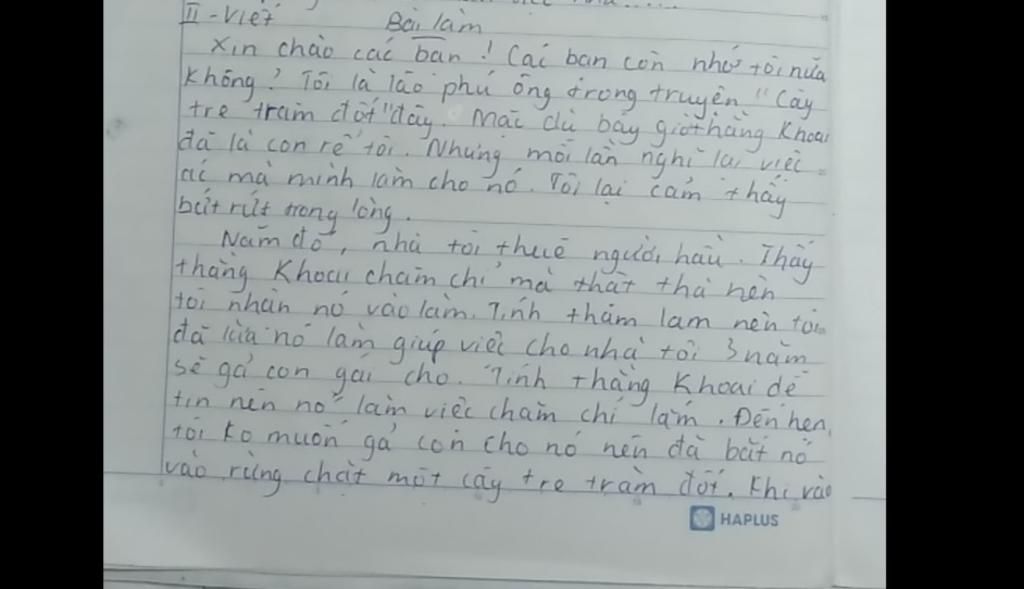 II - Viết Bài làm
Xin chào các bạn ! Các bạn còn nhớ tôi nữa
không ? Tôi là lão phú ông trong truyện "Cây
tre trăm đốt" đây. Mặc dù bây giờ thằng Khoai
đã là con rể tôi. Nhưng mỗi lần nghĩ lại việc
ác mà mình làm cho nó. Tôi lại cảm thấy
bứt rứt trong lòng.
Năm đó, nhà tôi thuê người hầu. Thấy
thằng Khoai chăm chỉ mà thật thà nên
tôi nhận nó vào làm. Tính thảm lam nên tôi
đã lừa nó làm giúp việc cho nhà tôi 3 năm
sẽ gả con gái cho. Tính thằng Khoai dễ
tin nên nó làm việc chăm chỉ lắm. Đến hẹn,
tôi ko muốn gả con cho nó nên đã bắt nó
vào rừng chặt một cây tre trăm đốt. Khi vào
HAPLUS